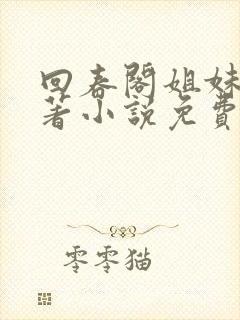 回春閣姐妹
著小說免費
零零猫